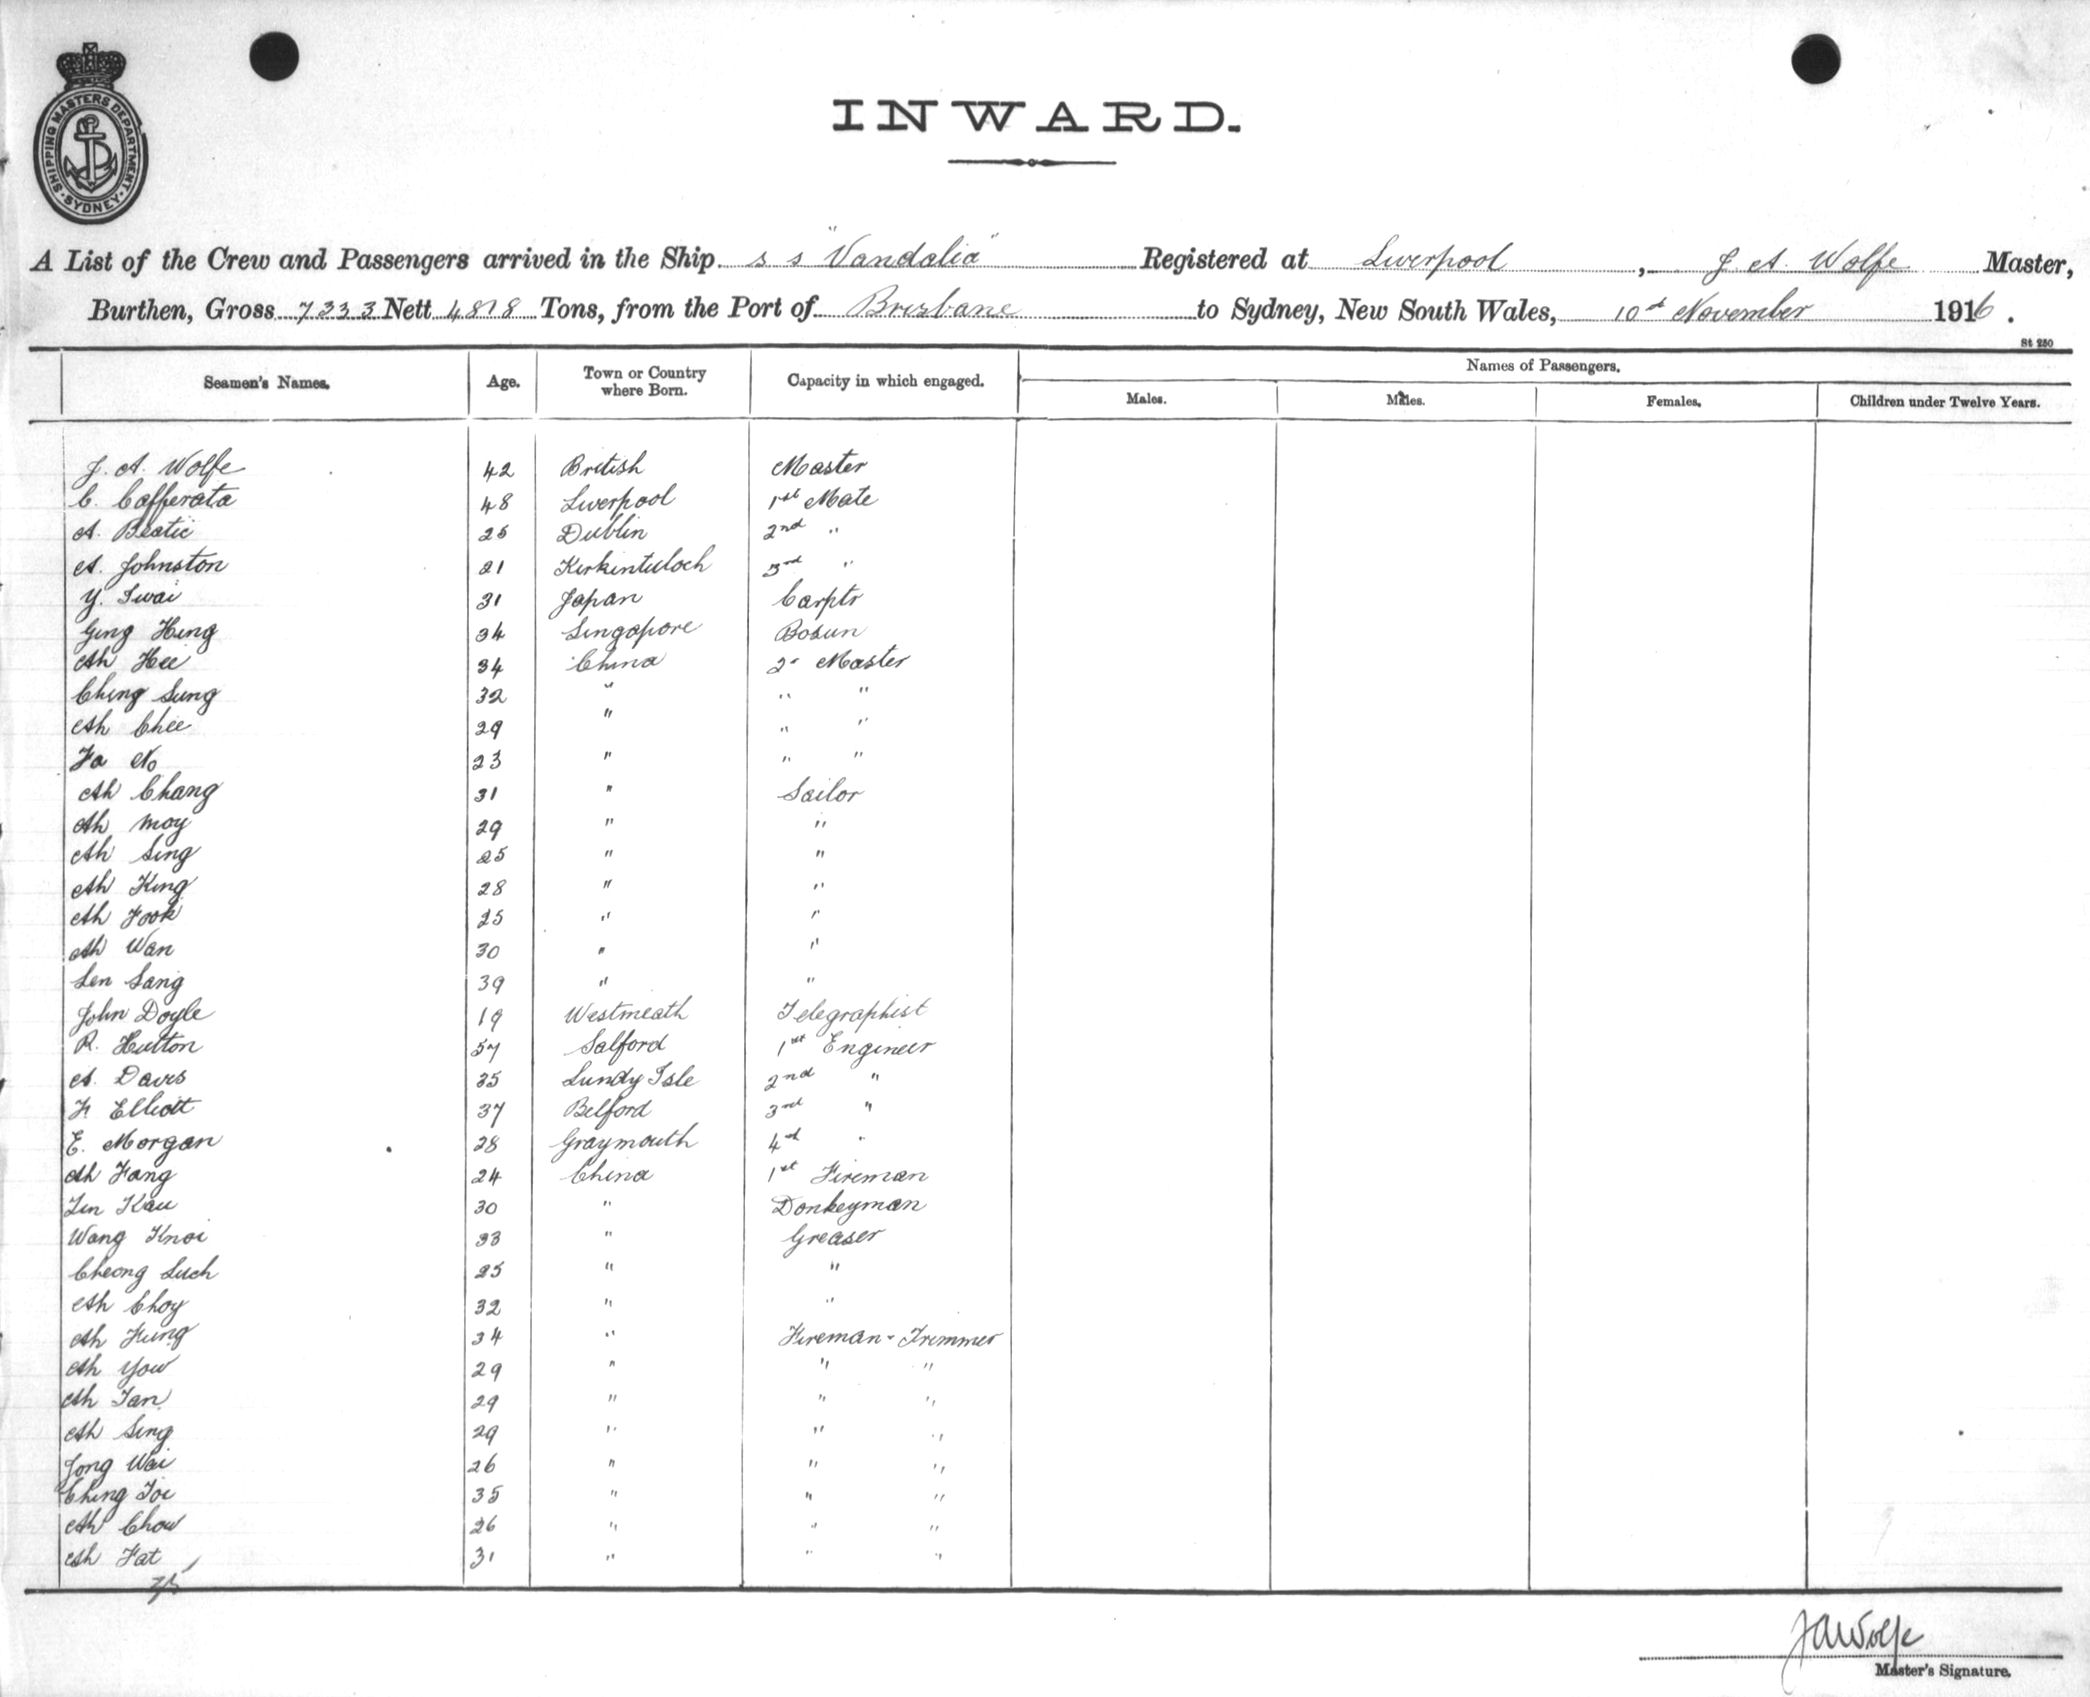 SHIPPING MASTERS DEPARTMENT
SYDNEY
INWARD.
A List of the Crew and Passengers arrived in the Ship s s "Vandalia" Registered at Liverpool, J A. Wolfe Master,
Burthen, Gross 7333 Nett 4818 Tons, from the Port of Brisbane to Sydney, New South Wales, 10th November 1916.
St 250
Seamen's Names. Age. Town or Country where Born. Capacity in which engaged. Names of Passengers.
Males. Males. Females. Children under Twelve Years.
J. A. Wolfe 42 British Master
C. Cafferata 48 Liverpool 1st Mate
A. Beatie 25 Dublin 2nd "
A. Johnston 21 Kirkintuloch 3rd "
Y. Iwai 31 Japan Carptr
Ging Hing 34 Singapore Bosun
Ah Hee 34 China 2r Master
Ching Sung 32 " " "
Ah Chee 29 " " "
Fa No 23 " " "
Ah Chang 31 " Sailor
Ah Moy 29 " "
Ah Sing 25 " "
Ah King 28 " "
Ah Fook 25 " "
Ah Wan 30 " "
Len Sang 39 " "
John Doyle 19 Westmeath Telegraphist
R. Hutton 57 Salford 1st Engineer
A. Daves 35 Lundy Isle 2nd "
F. Elliott 37 Belford 3rd "
E. Morgan 28 Graymouth 4th "
Ah Fang 24 China 1st Fireman
Lin Kau 30 " Donkeyman
Wang Knoi 33 " Greaser
Cheong Such 25 " "
Ah Choy 32 " "
Ah Fung 34 " Fireman - Trimmer
Ah You 29 " " "
Ah Tan 29 " " "
Ah Sing 29 " " "
Jong Wai 26 " " "
Ching Toi 35 " " "
Ah Chow 26 " " "
Ah Fat 31 " " "
35
JAWolfe
Master's Signature.